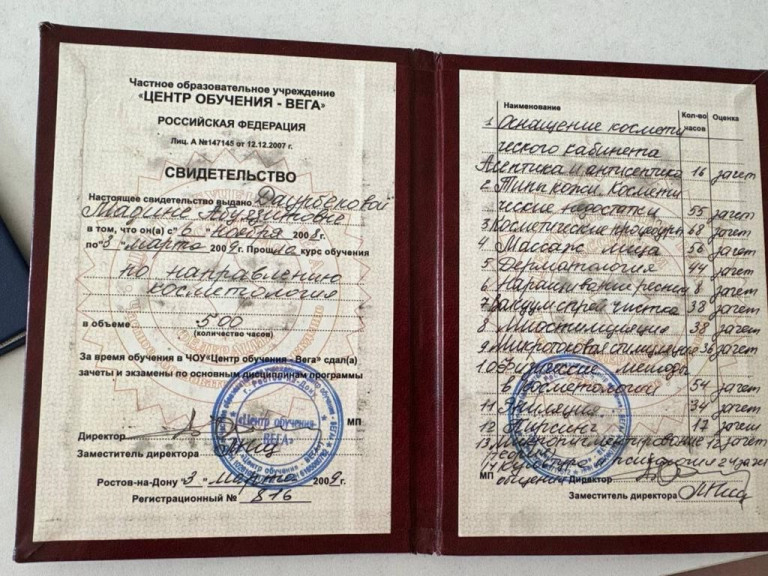 Частное образовательное учреждение
«ЦЕНТР ОБУЧЕНИЯ - ВЕГА»
РОССИЙСКАЯ ФЕДЕРАЦИЯ
Лиц. А №147145 от 12.12.2007 г.
СВИДЕТЕЛЬСТВО
Настоящее свидетельство выдано Даурбековой
Мадине Абуязитовне
в том, что он(а) с "6" ноября 2008г.
по "3" марта 2009г. Прошла курс обучения
по направлению
косметология
в объеме 500
(количество часов)
За время обучения в ЧОУ «Центр обучения - Вега» сдал(а)
зачеты и экзамены по основным дисциплинам программы
г. Ростов-на-Дону
«Центр обучения-
ВЕГА»
МП
Директор
Заместитель директора
Ростов-на-Дону "3" марта 2009г.
Регистрационный № 816
Наименование Кол-во часов Оценка
1 Оснащение космети
ческого кабинета
Асептика и антисептика 16 зачет
2 Типы кожи. Космети
ческие недостатки 55 зачет
3 Косметические процедуры 68 зачет
4 Массаж лица 56 зачет
5 Дерматология 44 зачет
6 Наращивание ресниц 8 зачет
7 Вакуум спрей чистка 38 зачет
8 Миостимуляция 38 зачет
9 Микротоковая стимуляция 36 зачет
10 Физические методы
в косметологии 54 зачет
11 Эпиляция 34 зачет
12 Пирсинг 17 зачет
13 Микропигментирование 12 зачет
(теория)
14 Культура и психология 24 зачет
общения
МП Директор
Заместитель директора